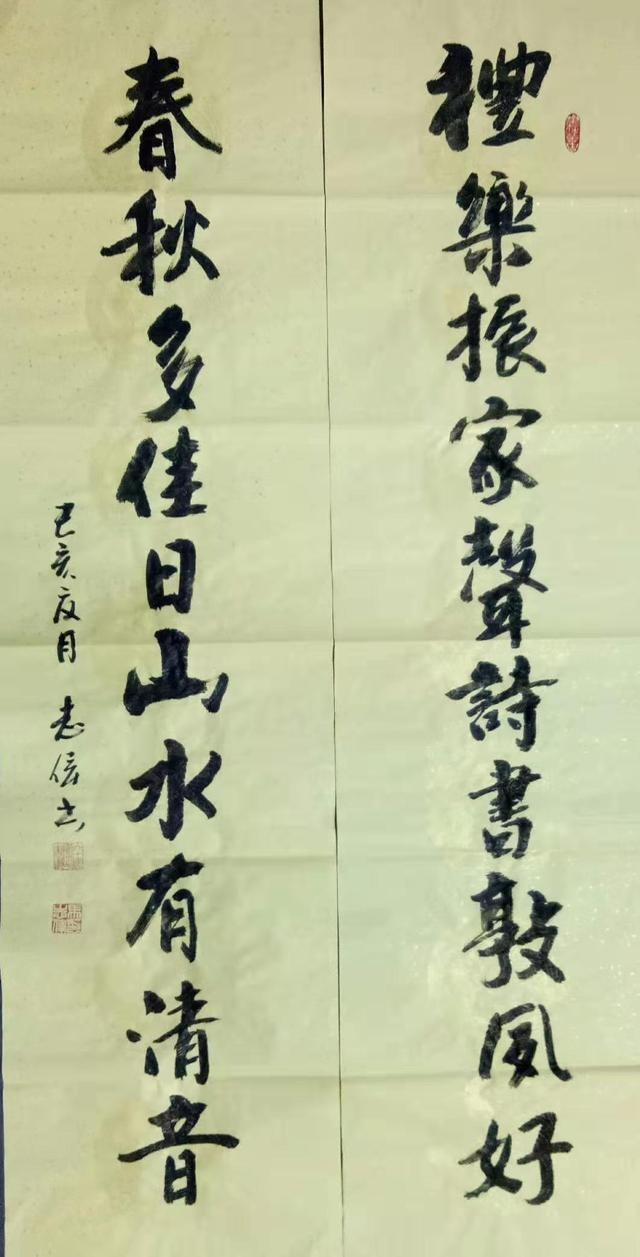 禮樂振家聲詩書敦夙好
春秋多佳日山水有清音
己亥夏月 志信書